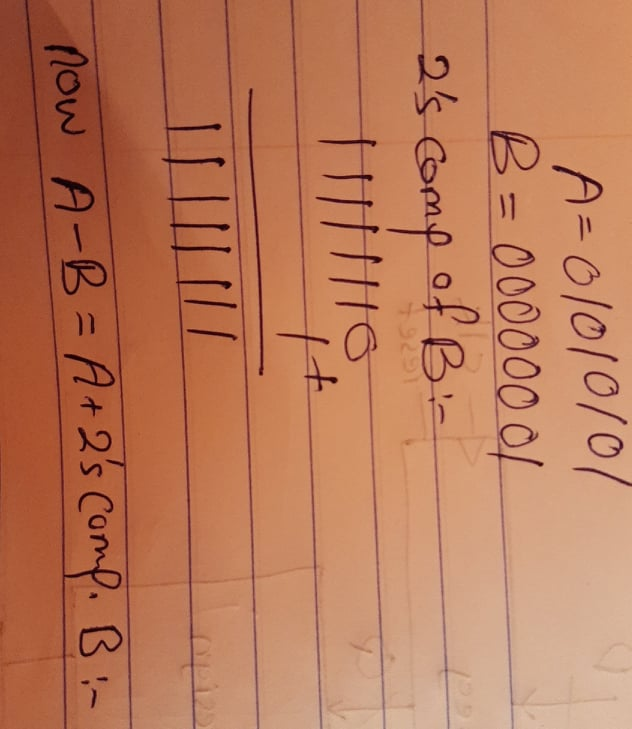 A = 01010101
B = 00000001
2's comp of B :-
11111110
1 +
11111111
now A - B = A + 2's comp. B :-